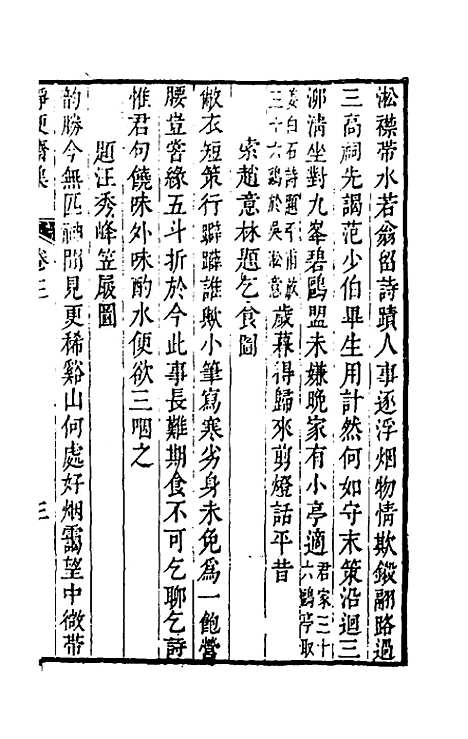 淞襟帶水若翁留詩蹟人事逐浮烟物情欺鎩翮路過
三高祠先謁范少伯畢生用計然何如守末策沿迴三
泖清坐對九峯碧鷗盟未嫌晚家有小亭適君家三十六鷗亭取
姜白石詩題千甫敵三十六鷗於吳淞意歲暮得歸來剪燈話平昔
索趙意林題乞食圖
敝衣短策行躃躃誰歟小筆寫寒劣身未免爲一飽營
腰豈嘗緣五斗折於今此事長難期食不可乞聊乞詩
惟君句饒味外味酌水便欲三咽之
題汪秀峰笠屐圖
韵勝今無匹神閒見更稀谿山何處好烟靄望中微帶
淨便齋集
卷三
三